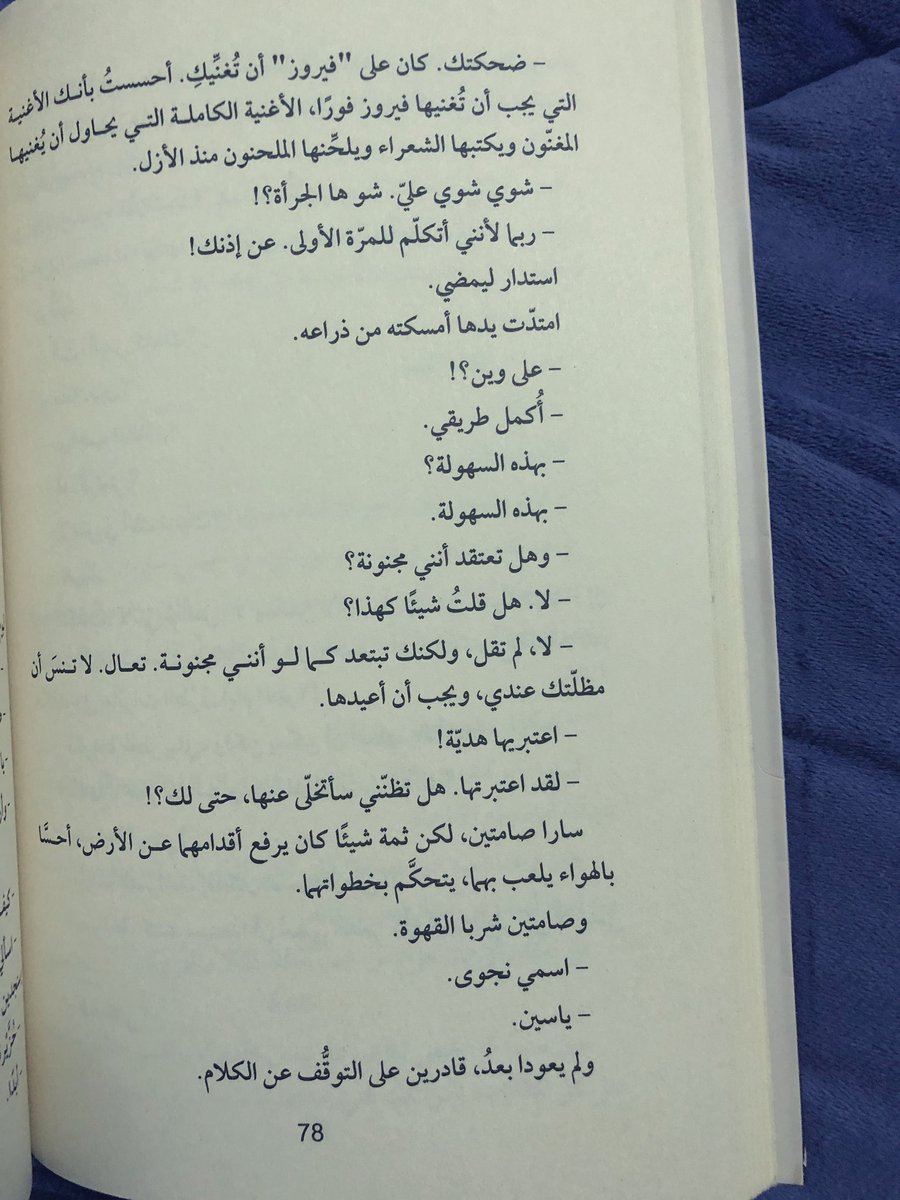 – ضحكتك. كان على "فيروز" أن تُغنِّيكِ. أحسستُ بأنـك الأغنية
التي يجب أن تُغنيها فيروز فورًا، الأغنية الكاملـة التـي يحـاول أن يُغنيهـا
المغنّون ويكتبها الشعراء ويلحِّنها الملحنون منذ الأزل.
– شوي شوي عليّ. شو ها الجرأة؟!
– ربما لأنني أتكلّم للمرّة الأولى. عن إذنك!
استدار ليمضي.
امتدّت يدها أمسكته من ذراعه.
– على وين؟!
– أُكمل طريقي.
– بهذه السهولة؟
– بهذه السهولة.
– وهل تعتقد أنني مجنونة؟
– لا. هل قلتُ شيئًا كهذا؟
– لا، لم تقل، ولكنك تبتعد كـما لـو أننـي مجنونـة. تعـال. لا تـنسَ أن
مظلّتك عندي، ويجب أن أعيدها.
– اعتبريها هديّة!
– لقد اعتبرتها. هل تظنّني سأتخلّى عنها، حتى لك؟!
سارا صامتين، لكن ثمة شيئًا كان يرفع أقدامهما عـن الأرض، أحسَّا
بالهواء يلعب بهما، يتحكَّم بخطواتهما.
وصامتين شربا القهوة.
– اسمي نجوى.
– ياسين.
ولم يعودا بعدُ، قادرين على التوقُّف عن الكلام.
78